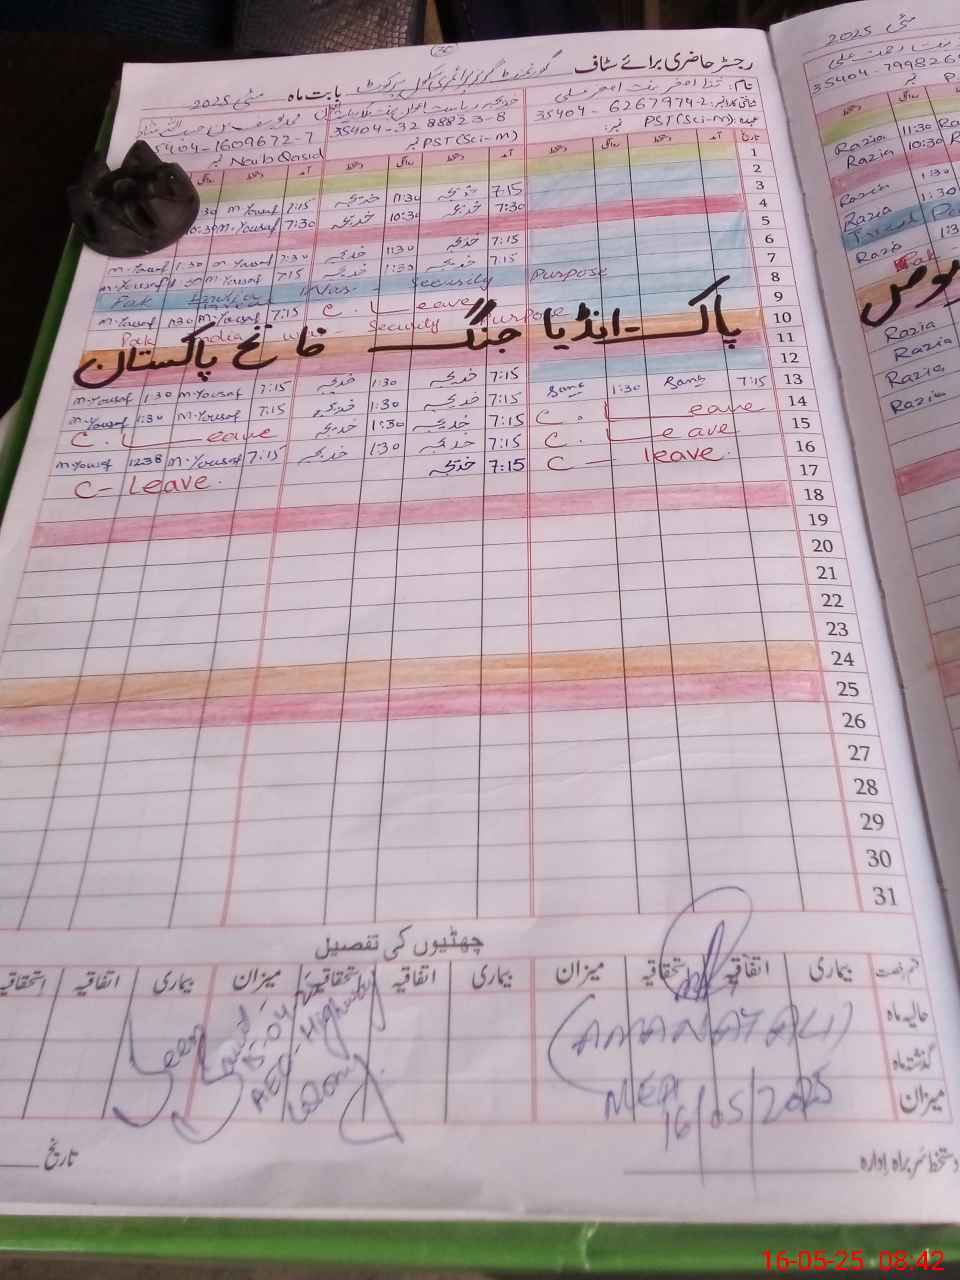 رجسٹر حاضری برائے سٹاف
بابت ماہ مئی 2025
نام:
35404-6267974-2
35404-32 88823-8
35404-1609672-7
عہدہ: PST (Sci-M) نمبر:
PST (Sci-M) نمبر
Naib Qasid نمبر
تاریخ آمد دستخط روانگی دستخط آمد دستخط روانگی دستخط آمد دستخط روانگی
1
2
7:15 خدیجہ 11:30 خدیجہ 7:15 M.Yousaf 3
7:30 خدیجہ 10:30 خدیجہ 7:30 M.Yousaf 10:30 4
5
7:15 خدیجہ 1:30 خدیجہ 7:30 M.Yousaf 1:30 M.Yousaf 6
7:15 خدیجہ 1:30 خدیجہ 7:15 M.Yousaf 1:30 M.Yousaf 7
Pak India War Security Purpose 8
M.Yousaf 1:30 M.Yousaf 7:15 C. Leave 9
Pak India War Security Purpose 10
پاک-انڈیا جنگ فاتح پاکستان
11
12
M.Yousaf 1:30 M.Yousaf 7:15 خدیجہ 1:30 خدیجہ 7:15 Sana 1:30 Sana 7:15 13
M.Yousaf 1:30 M.Yousaf 7:15 خدیجہ 1:30 خدیجہ 7:15 C. Leave 14
C. Leave خدیجہ 1:30 خدیجہ 7:15 C. Leave 15
M.Yousaf 12:38 M.Yousaf 7:15 خدیجہ 1:30 خدیجہ 7:15 C - leave. 16
C- Leave. خدیجہ 7:15 17
18
19
20
21
22
23
24
25
26
27
28
29
30
31
چھٹیوں کی تفصیل
قسم رخصت بیماری اتفاقیہ استحقاقیہ میزان بیماری اتفاقیہ استحقاقیہ میزان بیماری اتفاقیہ استحقاقیہ
حالیہ ماہ
گذشتہ ماہ
میزان
(AMANAT ALI)
MEA
16/05/2025
Seen
AEO-Highway
دستخط سربراہ ادارہ
تاریخ
مئی 2025
35404-799826
Razia 11:30
Razia 10:30
Razia 1:30
Razia 1:30
Razia
Pak
Razia
Razia
Razia
Razia
16-05-25 08:42